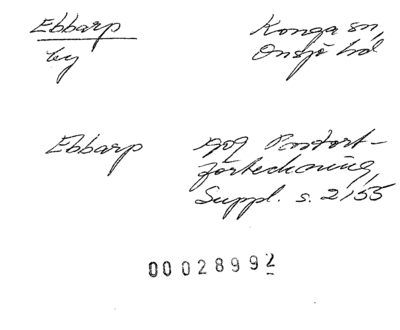 Ebbarp
by
Konga sn,
Onsjö hd
Ebbarp
1909 Postort-
förteckning,
Suppl. s. 2/55
00028992